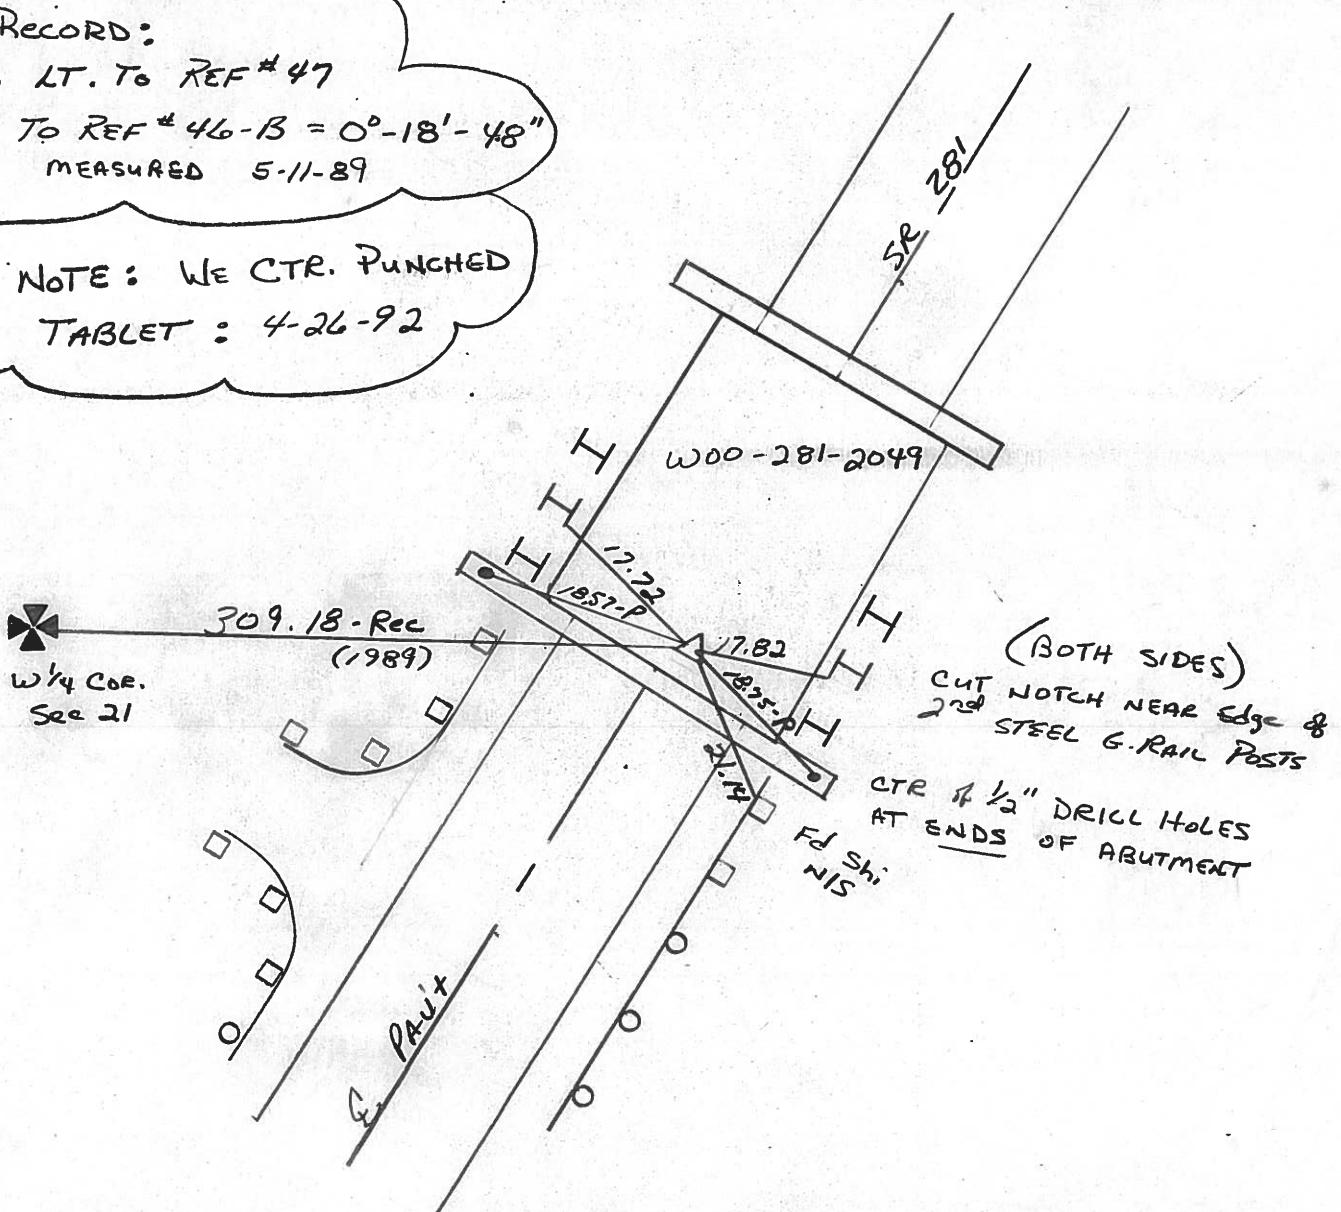 RECORD:
LT. TO REF # 47
TO REF # 46-B = 0°-18'-48"
MEASURED 5-11-89
NOTE: WE CTR. PUNCHED
TABLET: 4-26-92
SR 281
W00-281-2049
17.72
18.57-P
309.18-Rec
(1989)
W 1/4 COR.
Sec 21
17.82
18.75-P
21.14
(BOTH SIDES)
CUT NOTCH NEAR Edge of
2nd STEEL G.RAIL POSTS
CTR of 1/2" DRILL HOLES
AT ENDS OF ABUTMENT
Fd Shi
N/S
℄ PAV't